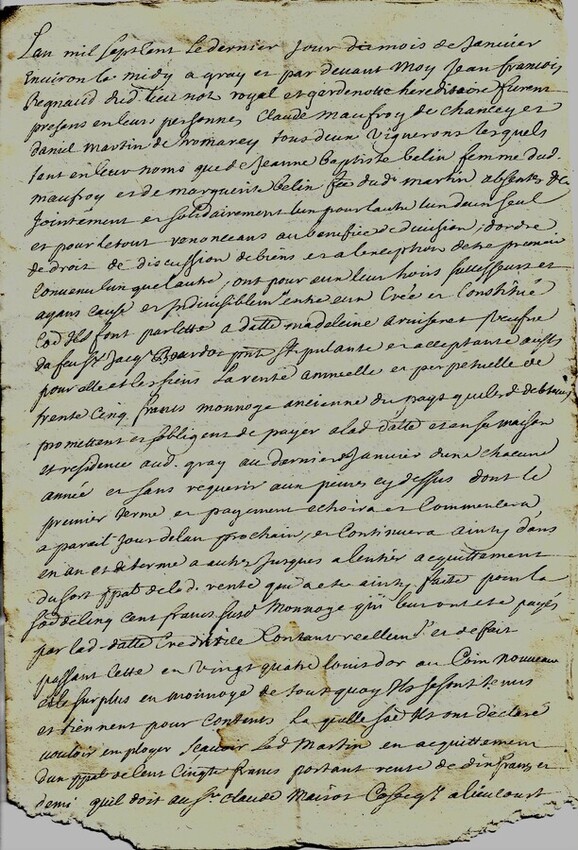 Lan mil Sept Cent Le dernier Jour du mois de Janvier
Environ le midy a gray et par devant Moy Jean francois
Regnaud dud. lieu not. royal et gardenotte hereditaire furent
presens en leurs personnes Claude Maufroy de Chancey et
daniel Martin de tous deux Vignerons lesquels
tant en leur noms que de Jeanne Baptiste belin femme dud.
maufroy et de marguerite belin fee dud. martin absentes &c
Jointement et solidairement lun pour lautre lun deux seul
et pour le tout renonceans au benefice de division, dordre
de droit de discussion de biens et a lexception destre premier
Convenu lun que lautre, ont pour eux leur hoirs successeurs et
ayans cause et Indivisiblem entre eux Créé et Constitué
Cõe Ils font par cette a datte madeleine veufve
du feu Sr Jacq. pnte Stipulante et acceptante aussy
pour elle et les siens La rente annuelle et perpetuelle de
trente Cinq francs monnoye ancienne du pays quils
promettent et sobligent de payer a lad. datte et en sa maison
et residence aud. gray au dernier Janvier dune chacune
année et sans requerir aux peines cy dessus dont le
premier terme et payement echoira et Commencera
a parail Jour de lan prochain, et Continuera ainsy dans
en an et de terme a autre Jusques a lentier acquittement
du sort ppal de lad. rente qui a ete ainsy faite pour la
sõe de Cinq Cent francs susd. Monnoye qui leur ont ete payés
par lad. datte Creditrice Contant reellemt et de fait
passant Cette en Vingt quatre louis dor au Coin nouveau
et le surplus en monnoye de tout quoy Ils se sont tenus
et tiennent pour contents La quelle sõe Ils ont declaré
vouloir employer scavoir Led. Martin en acquittement
dun ppal de Cent Cinqte francs portant rente de dix francs et
demi quil doit au Sr Claude Mairot a lieucourt